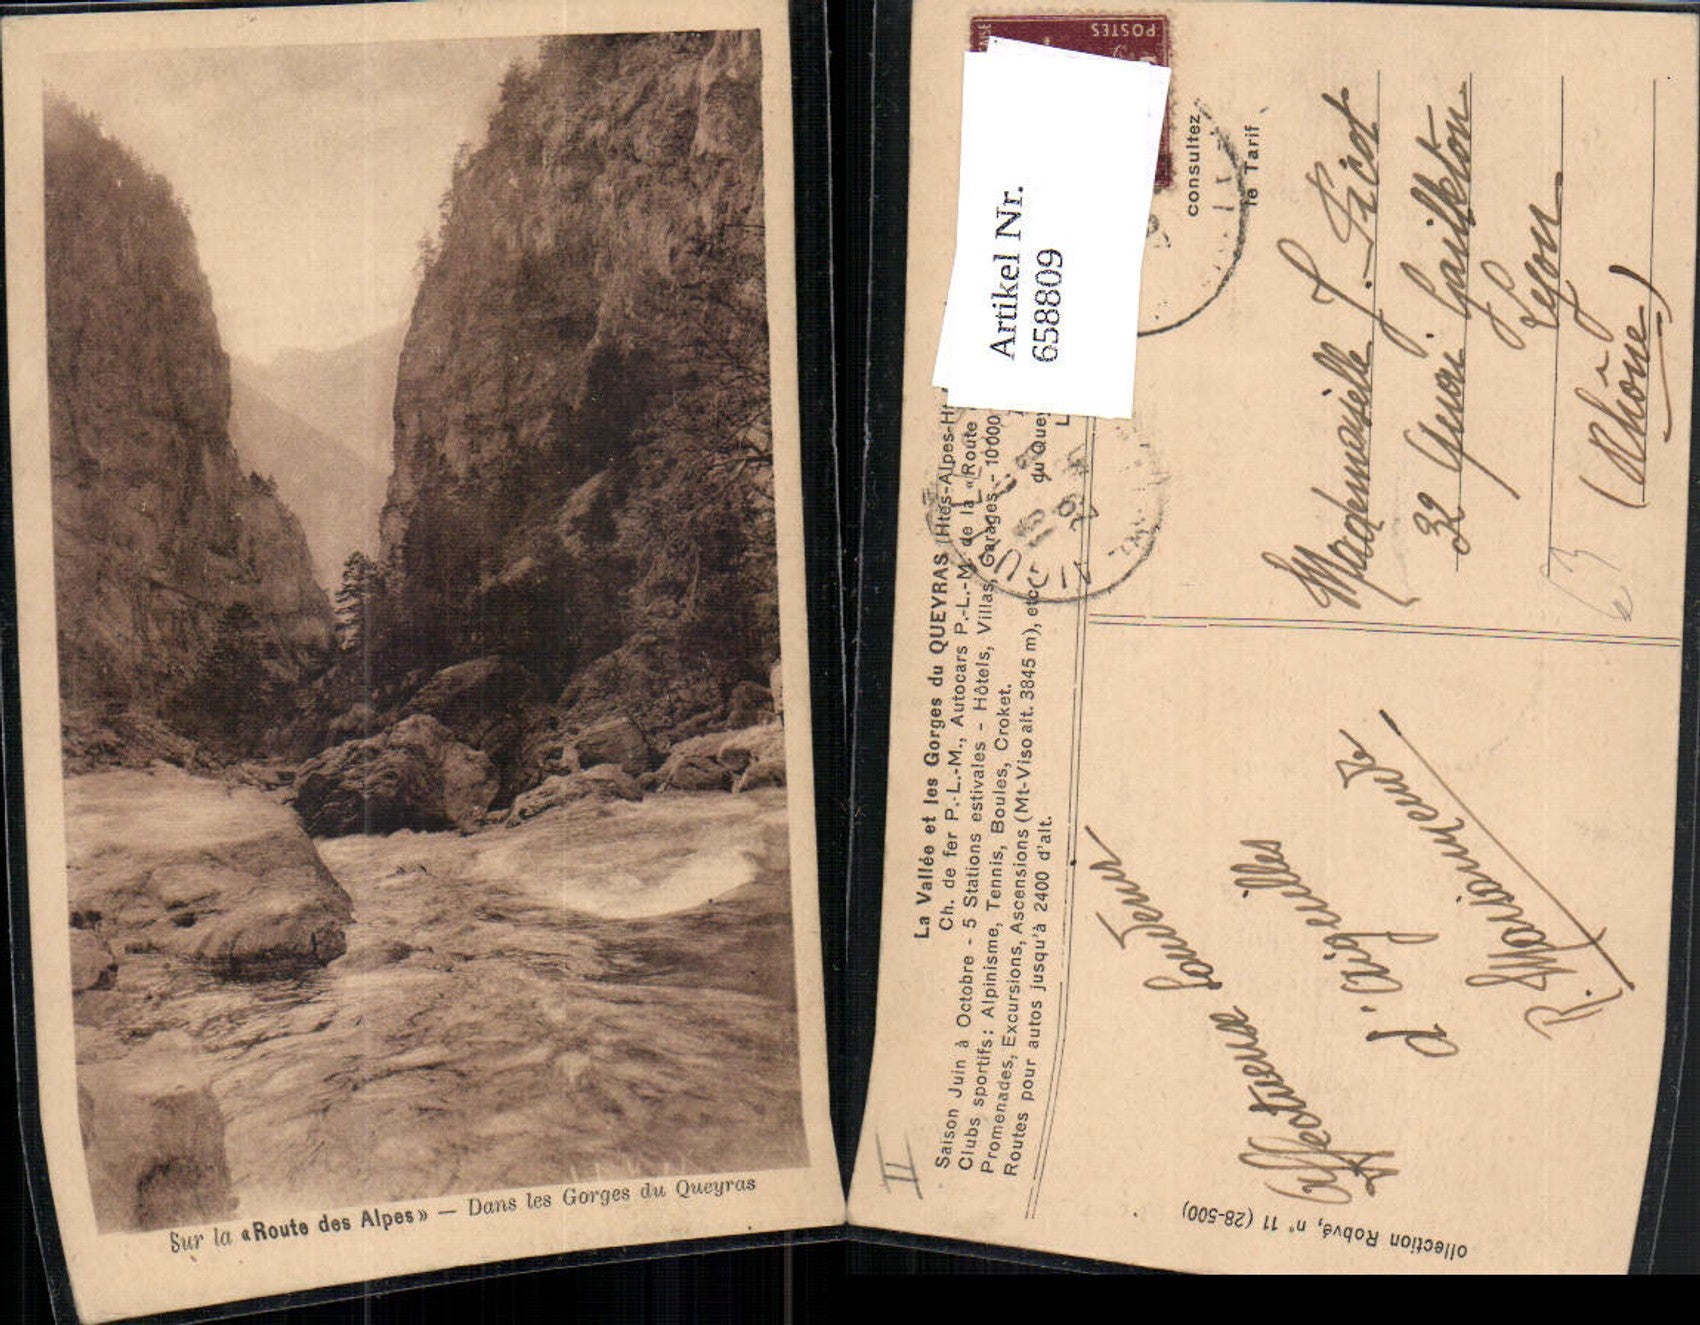 Sur la «Route des Alpes» — Dans les Gorges du Queyras
POSTES
Artikel Nr.
658809
consultez
le Tarif
La Vallée et les Gorges du QUEYRAS (Htes-Alpes-H
Ch. de fer P.-L.-M., Autocars P.-L.-M. de la «Route
Saison Juin à Octobre - 5 Stations estivales - Hôtels, Villas, Garages - 10000
Clubs sportifs : Alpinisme, Tennis, Boules, Croket.
Promenades, Excursions, Ascensions (Mt-Viso alt. 3845 m), etc.
du Quey
Routes pour autos jusqu'à 2400 d'alt.
L
Mademoiselle J. Picot
32 Quai Gailleton
Lyon
(Rhône)
63
Affectueux Souvenir
d'Aiguilles
R.
II
ollection Robvé, n° 11 (28-500)